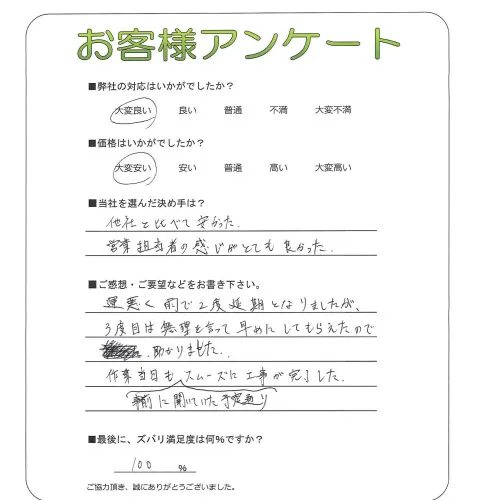 お客様アンケート
■弊社の対応はいかがでしたか？
大変良い 良い 普通 不満 大変不満
■価格はいかがでしたか？
大変安い 安い 普通 高い 大変高い
■当社を選んだ決め手は？
他社と比べて安かった.
営業担当者の感じがとても良かった.
■ご感想・ご要望などをお書き下さい。
運悪く雨で2度延期となりましたが、
3度目は無理を言って早めにしてもらえたので
助かりました.
作業当日もスムーズに工事が完了した.
事前に聞いていた予定通り
■最後に、ズバリ満足度は何%ですか？
100 %
ご協力頂き、誠にありがとうございました。